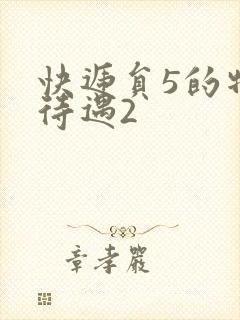 快递员5的特
待遇2
章孝严